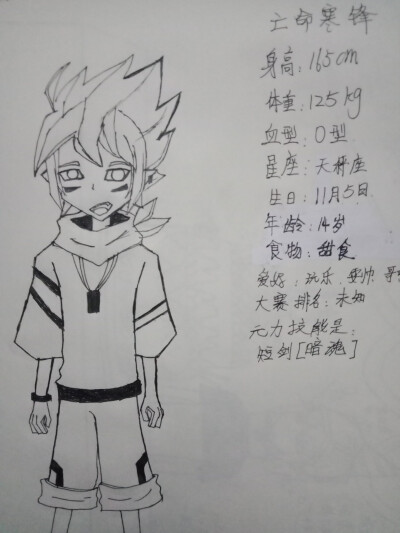 亡命寒锋
身高：165cm
体重：125kg
血型：O型
星座：天秤座
生日：11月5日
年龄：14岁
食物：甜食
爱好：玩乐 耍帅
大赛排名：未知
元力技能是：
短剑[暗魂]